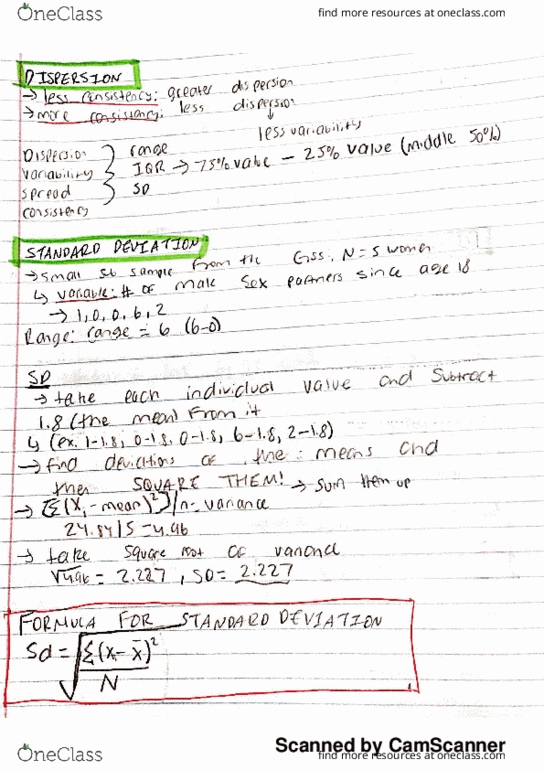 OneClass
find more resources at oneclass.com
DISPERSION
→ less consistency: greater dispersion
→ more consistency: less dispersion
↓
less variability
Dispersion } range
variability } IQR → 75% value – 25% value (middle 50%)
spread } SD
consistency
STANDARD DEVIATION
→ small sub sample from the GSS, N=5 women
↳ variable: # of male sex partners since age 18
→ 1, 0, 0, 6, 2
Range: range = 6 (6-0)
SD
→ take each individual value and subtract
1.8 (the mean) from it
↳ (ex. 1-1.8, 0-1.8, 0-1.8, 6-1.8, 2-1.8)
→ find deviations of the means and
then SQUARE THEM! → sum them up
→ [Σ(Xi - mean)²]/n = variance
24.84/5 = 4.96
→ take square root of variance
√4.96 = 2.227, SD = 2.227
FORMULA FOR STANDARD DEVIATION
Sd = √Σ(xi - x̄)²
N
Scanned by CamScanner
OneClass
find more resources at oneclass.com